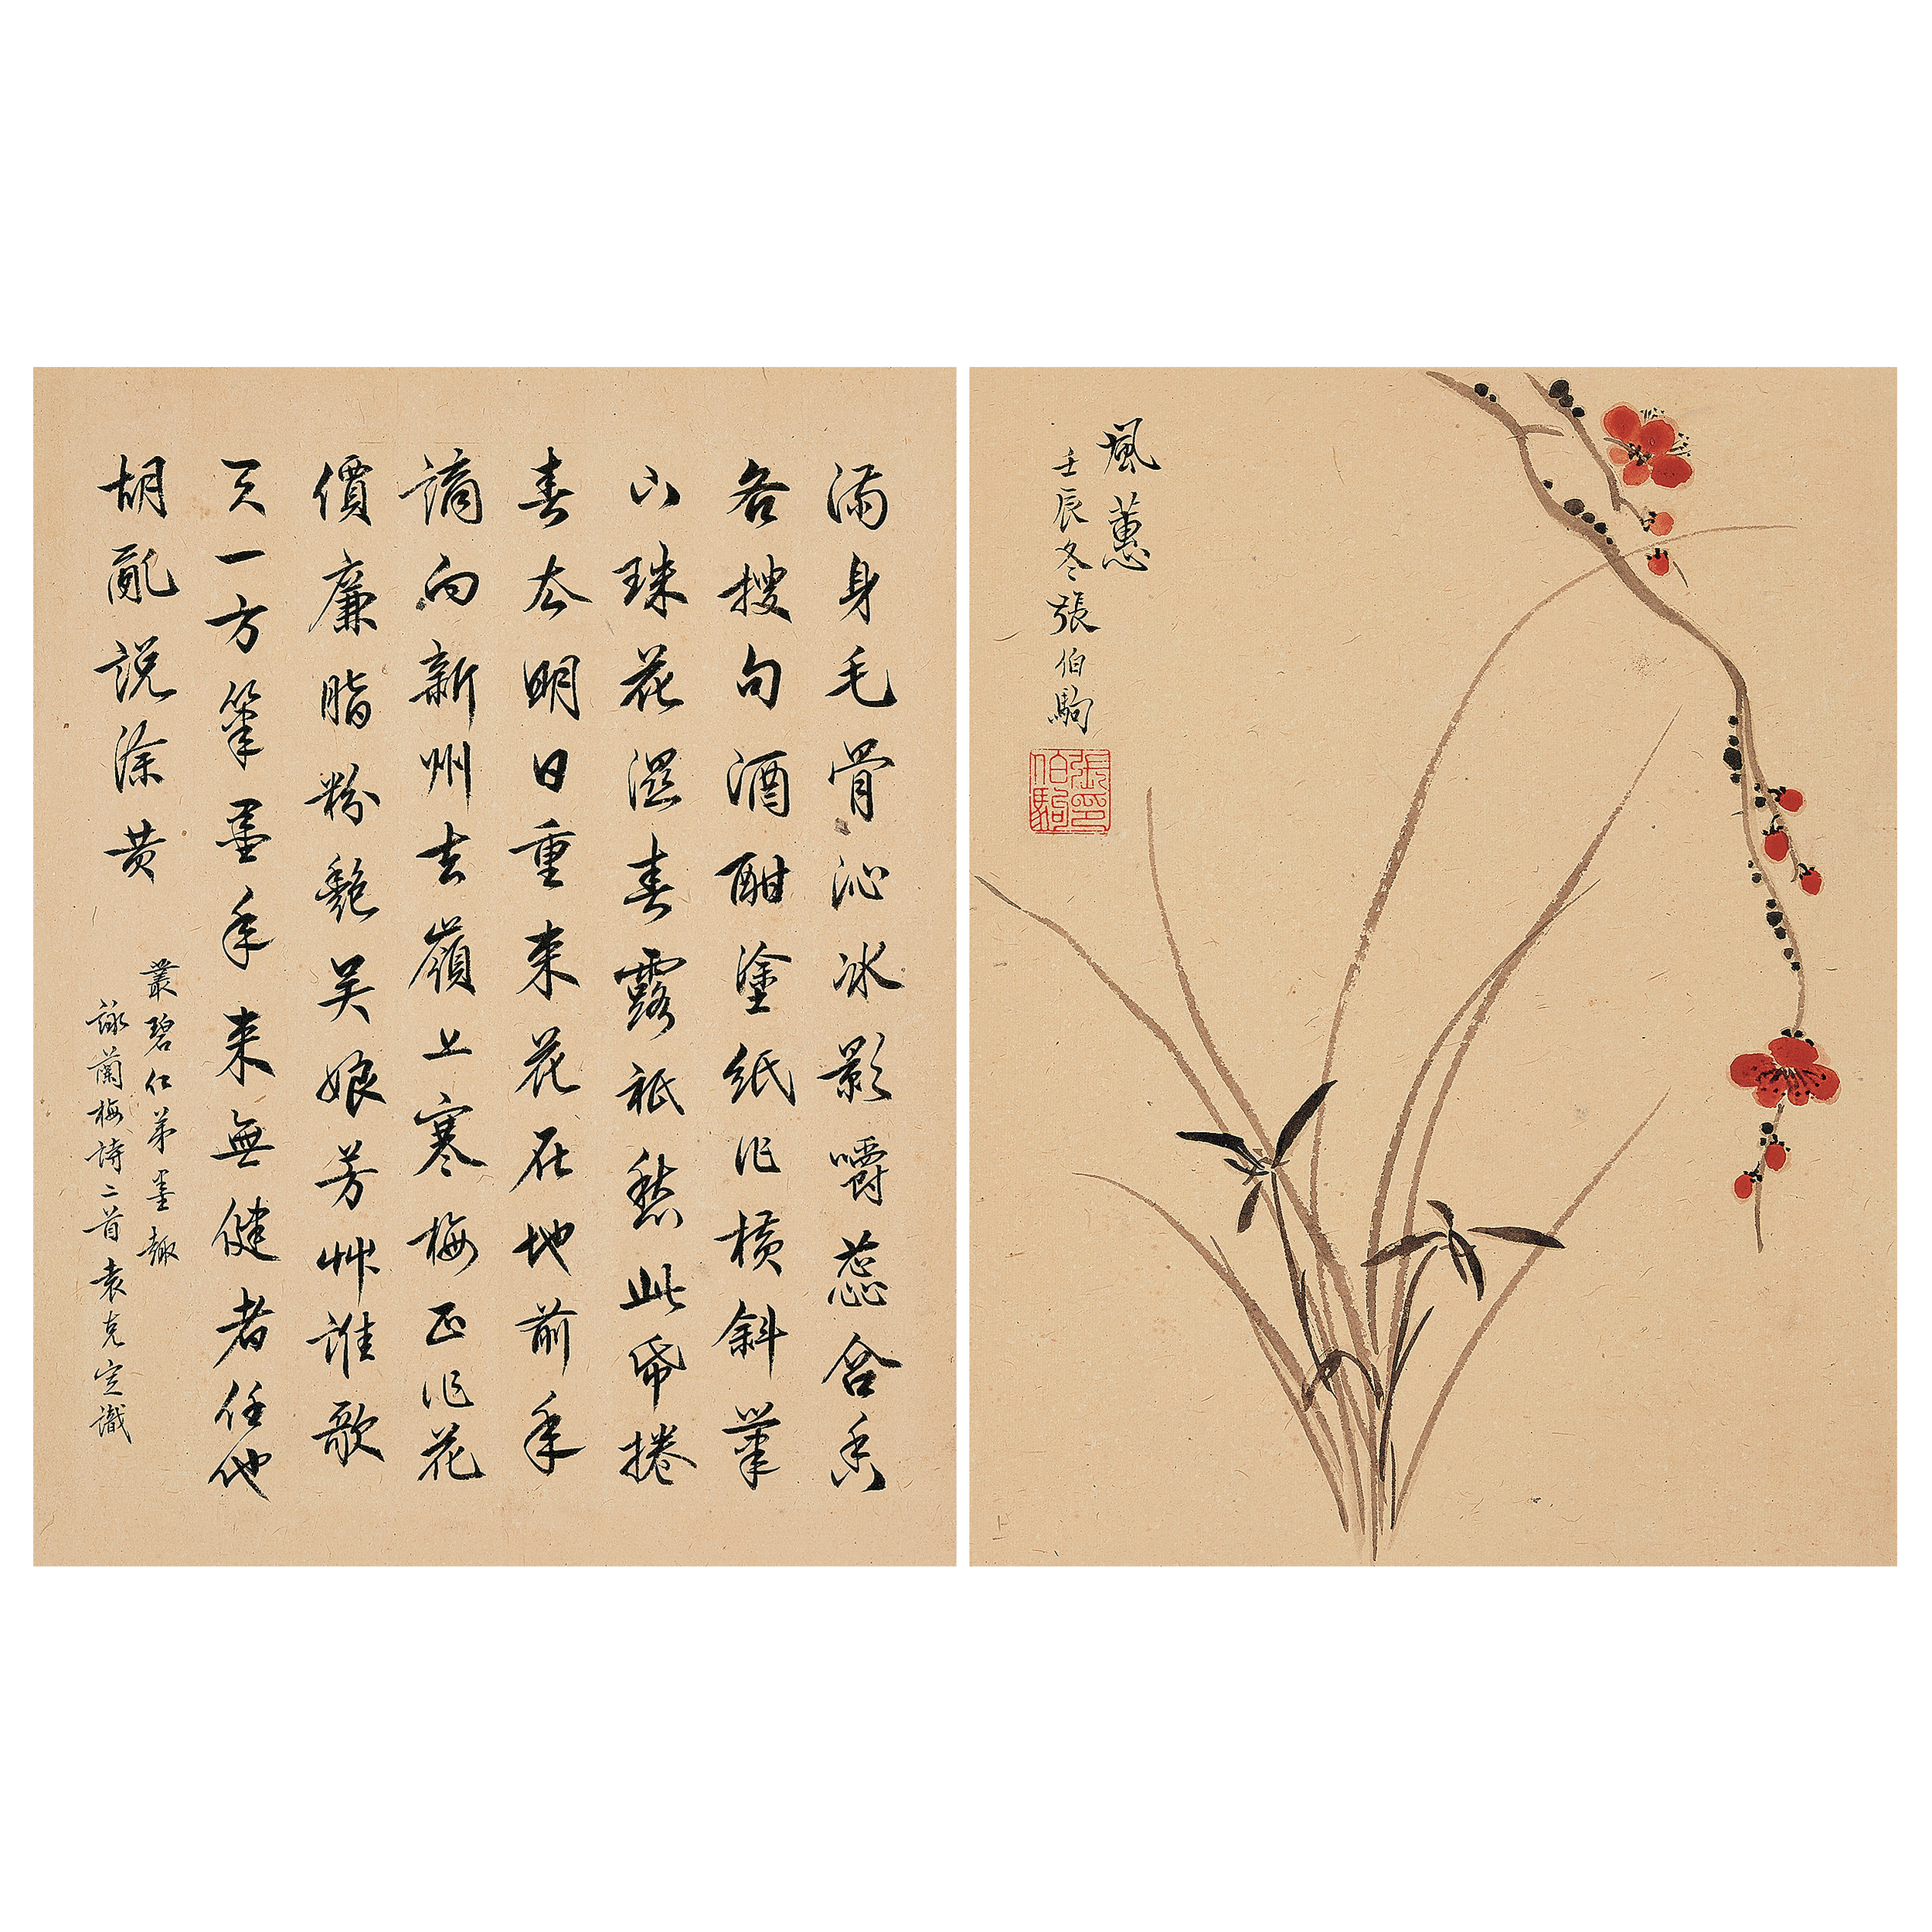 風蕙
壬辰冬張伯駒
張伯駒印
滿身毛骨沁冰影嚼蕊含香
各搜句酒酣塗紙作橫斜筆
下珠花溼春露祇愁此帋捲
春去明日重來花在地前年
謫向新州去嶺上寒梅正作花
價廉脂粉艷吴娘芳艸誰歌
天一方筆墨年来無健者任他
胡亂説涂黄
叢碧仁弟墨趣
詠蘭梅詩二首袁克定識